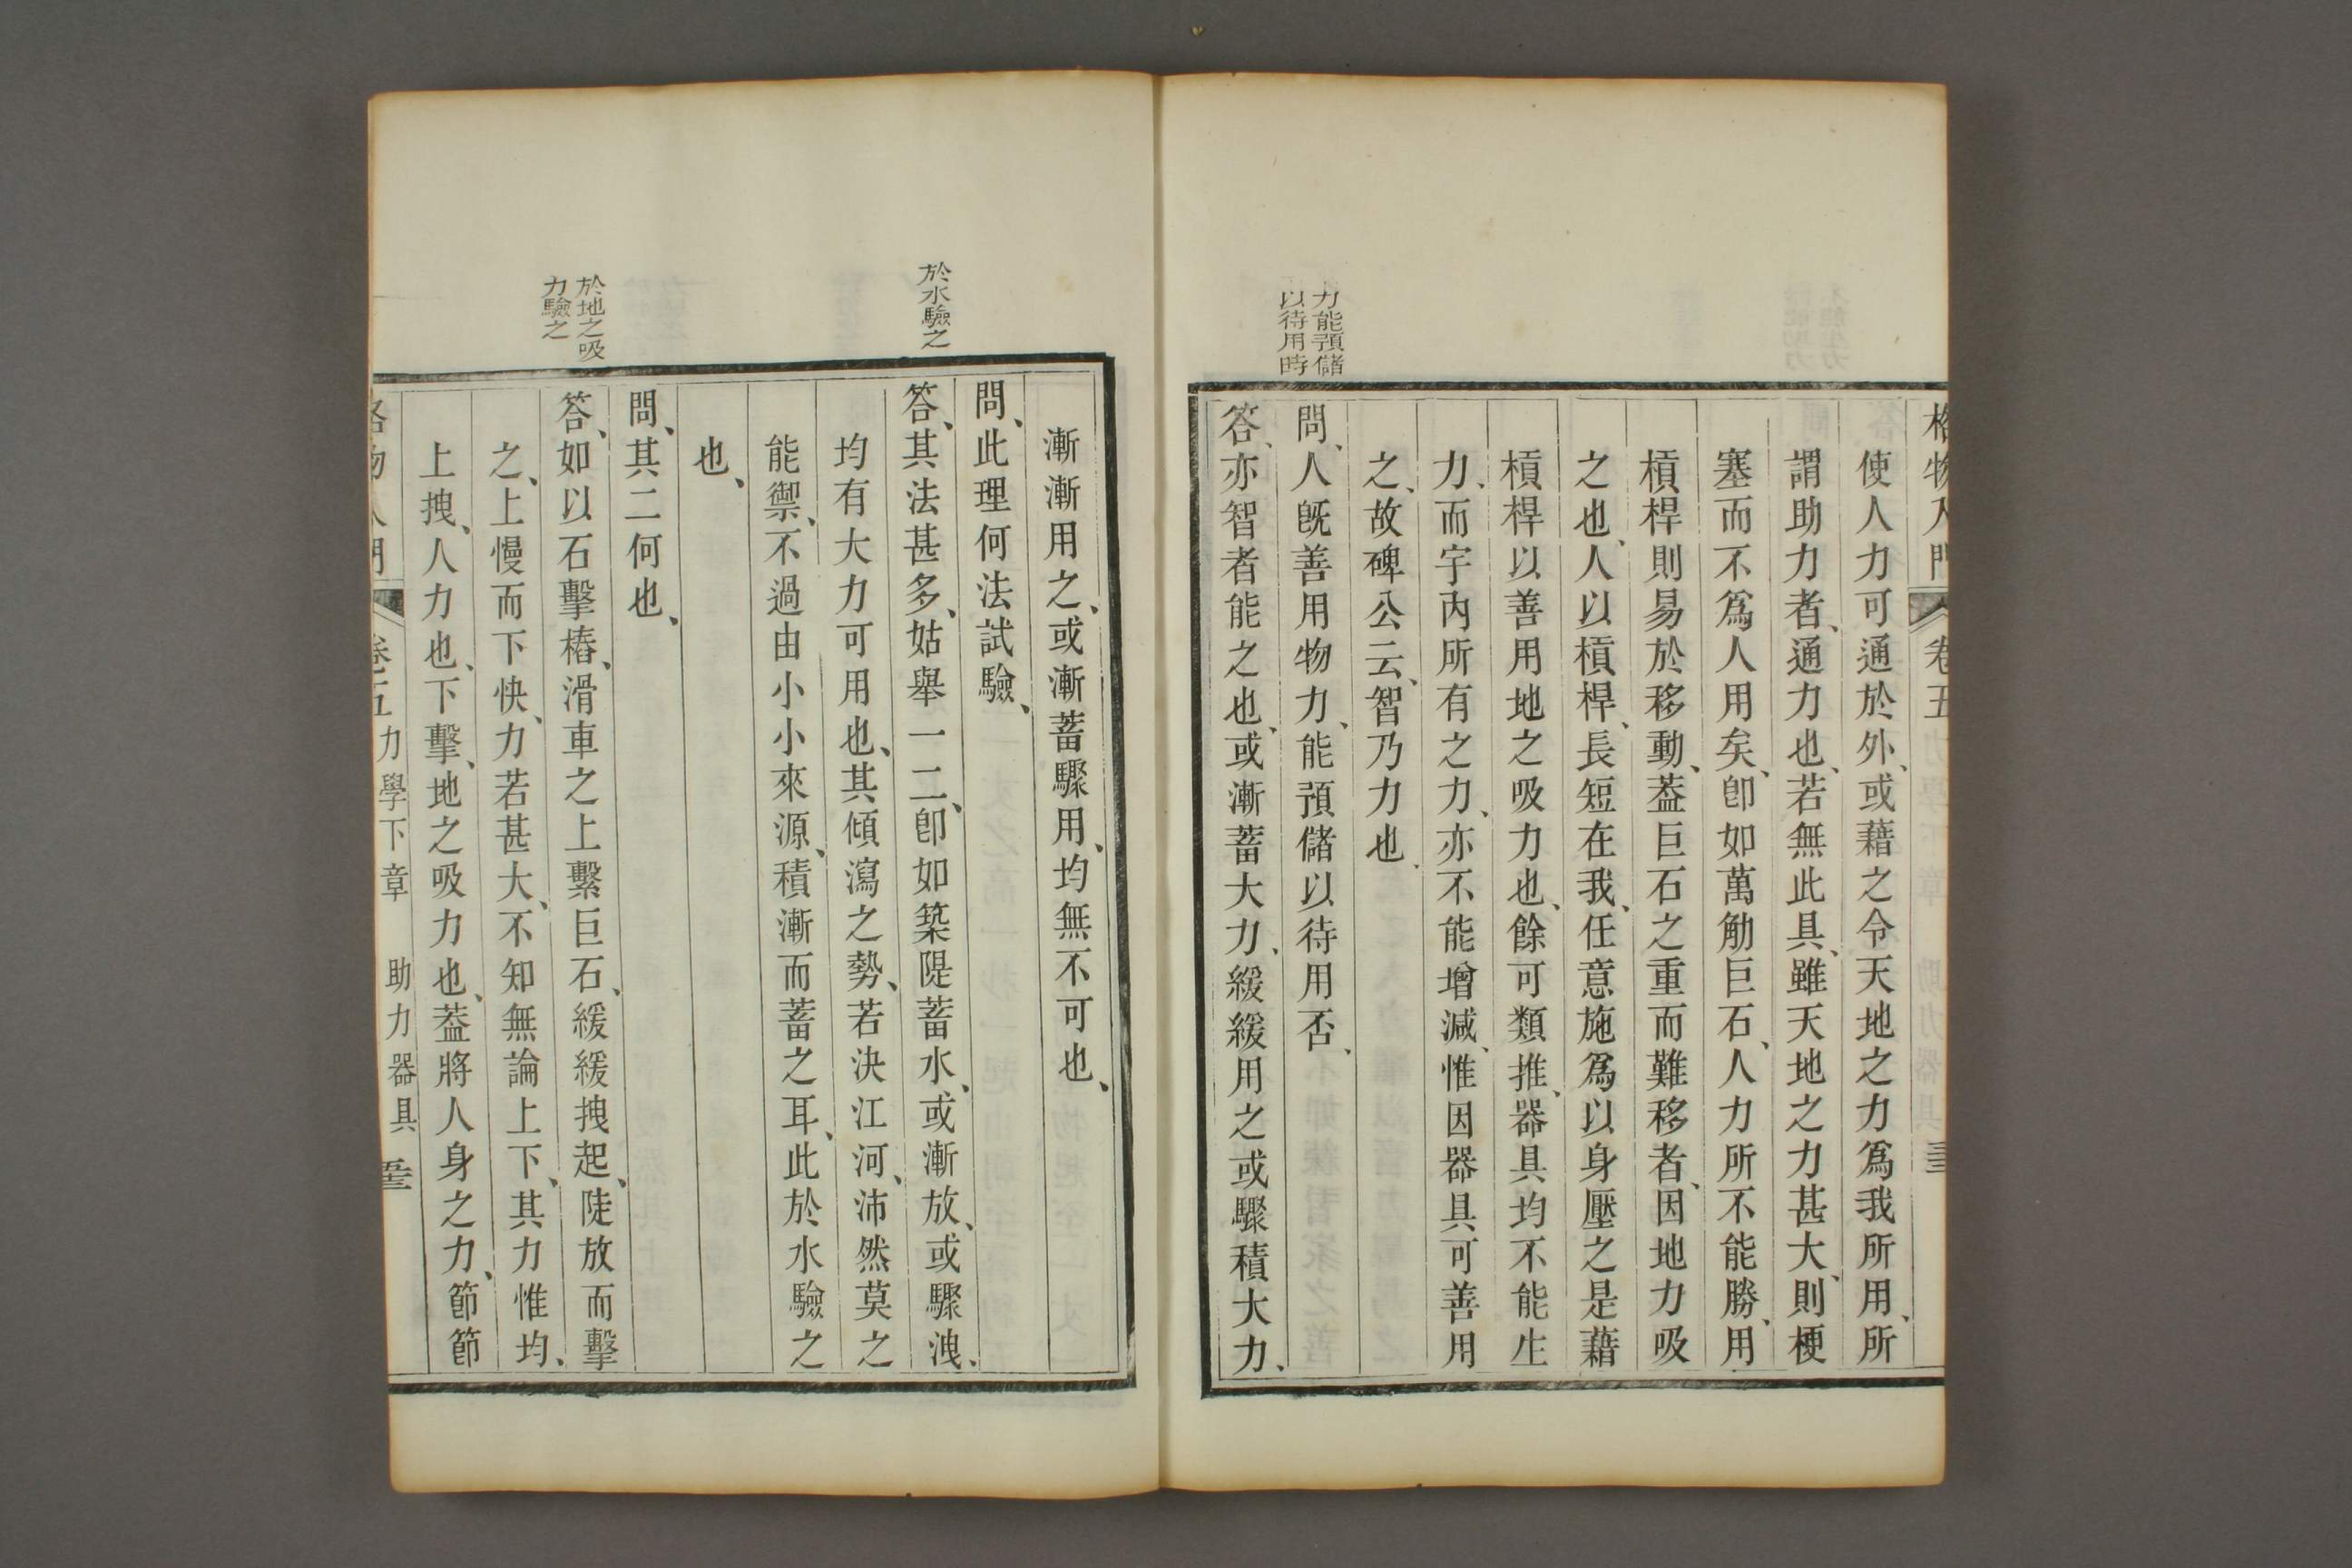 格物入門 卷五
使人力可通於外、或藉之令天地之力爲我所用、所
謂助力者、通力也、若無此具、雖天地之力甚大、則梗
塞而不爲人用矣、卽如萬觔巨石、人力所不能勝、用
槓桿則易於移動、葢巨石之重而難移者、因地力吸
之也、人以槓桿、長短在我、任意施爲以身壓之是藉
槓桿以善用地之吸力也、餘可類推、器具均不能生
力、而宇內所有之力、亦不能增減、惟因器具可善用
之、故碑公云、智乃力也、
力能預儲
以待用時
問、人旣善用物力、能預儲以待用否、
答、亦智者能之也、或漸蓄大力、緩緩用之或驟積大力、
漸漸用之、或漸蓄驟用、均無不可也、
問、此理何法試驗、
於水驗之
答、其法甚多、姑舉一二、卽如築隄蓄水、或漸放、或驟洩、
均有大力可用也、其傾瀉之勢、若決江河、沛然莫之
能禦、不過由小小來源、積漸而蓄之耳、此於水驗之
也、
問、其二何也、
於地之吸
力驗之
答、如以石擊樁、滑車之上繫巨石、緩緩拽起、陡放而擊
之、上慢而下快、力若甚大、不知無論上下、其力惟均、
上拽、人力也、下擊、地之吸力也、葢將人身之力、節節
格物入門 卷五 力學下章 助力器具